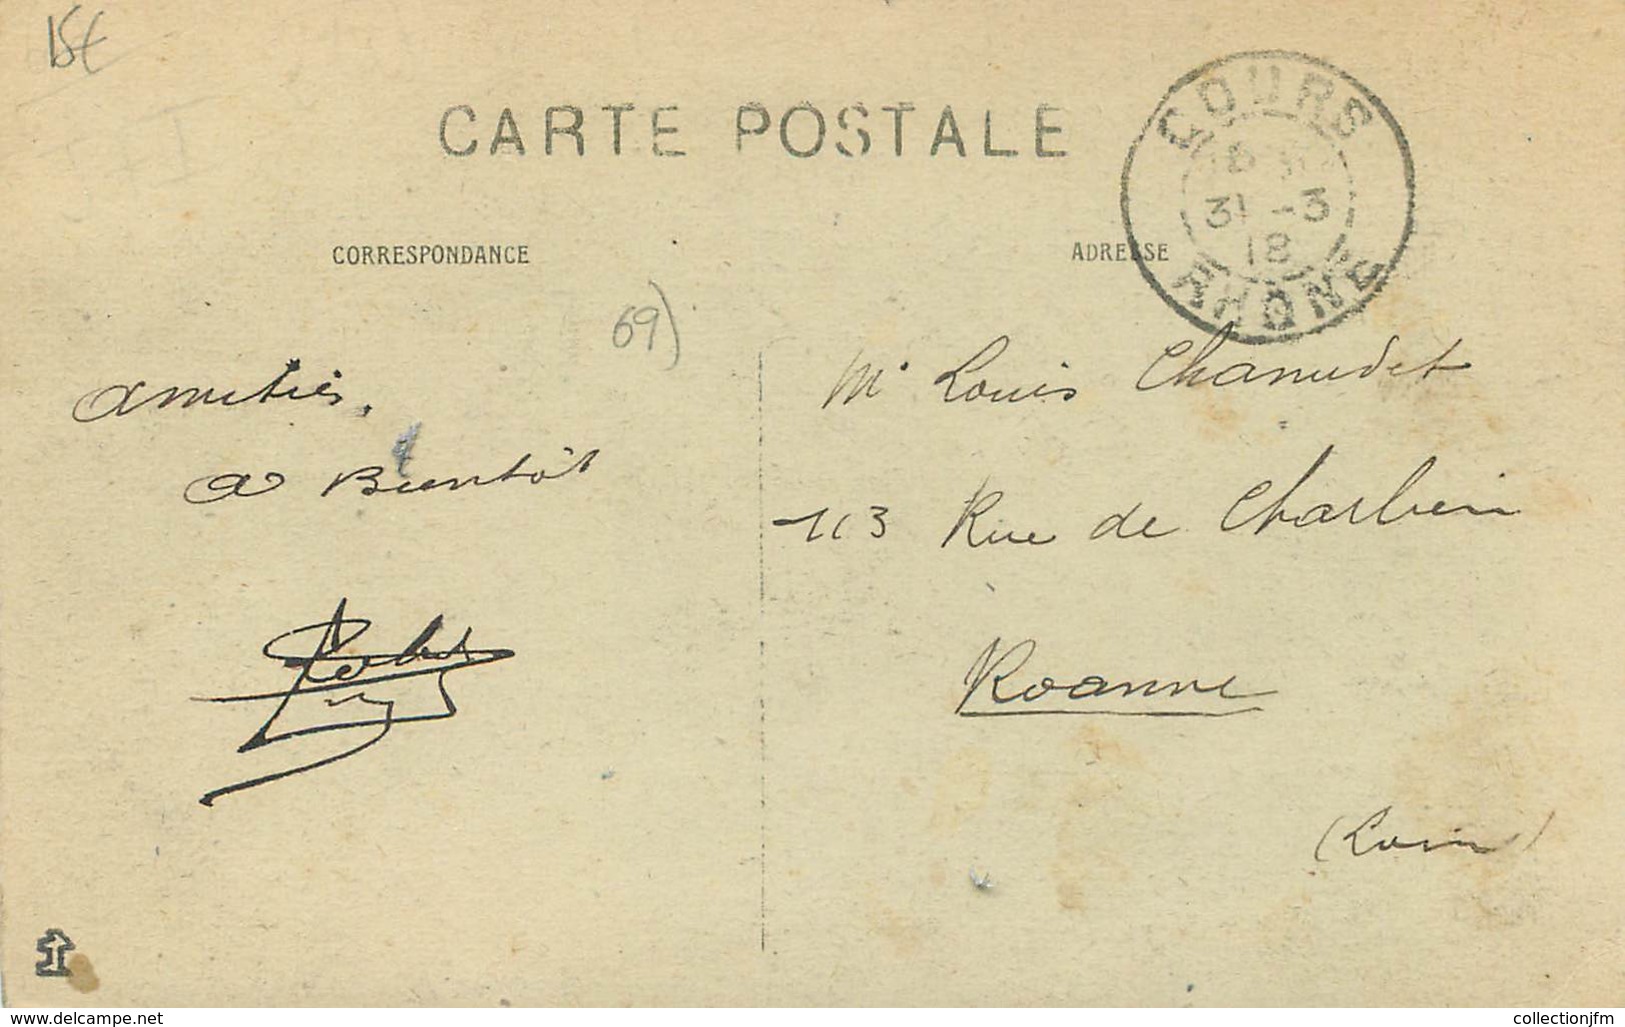 15€
CARTE POSTALE
COURS
31 -3
18
RHÔNE
CORRESPONDANCE
ADRESSE
69)
Amitiés.
A Bientôt
Mr Louis Chanudet
113 Rue de Charlieu
Roanne
(Loire)
www.delcampe.net
collectionjfm